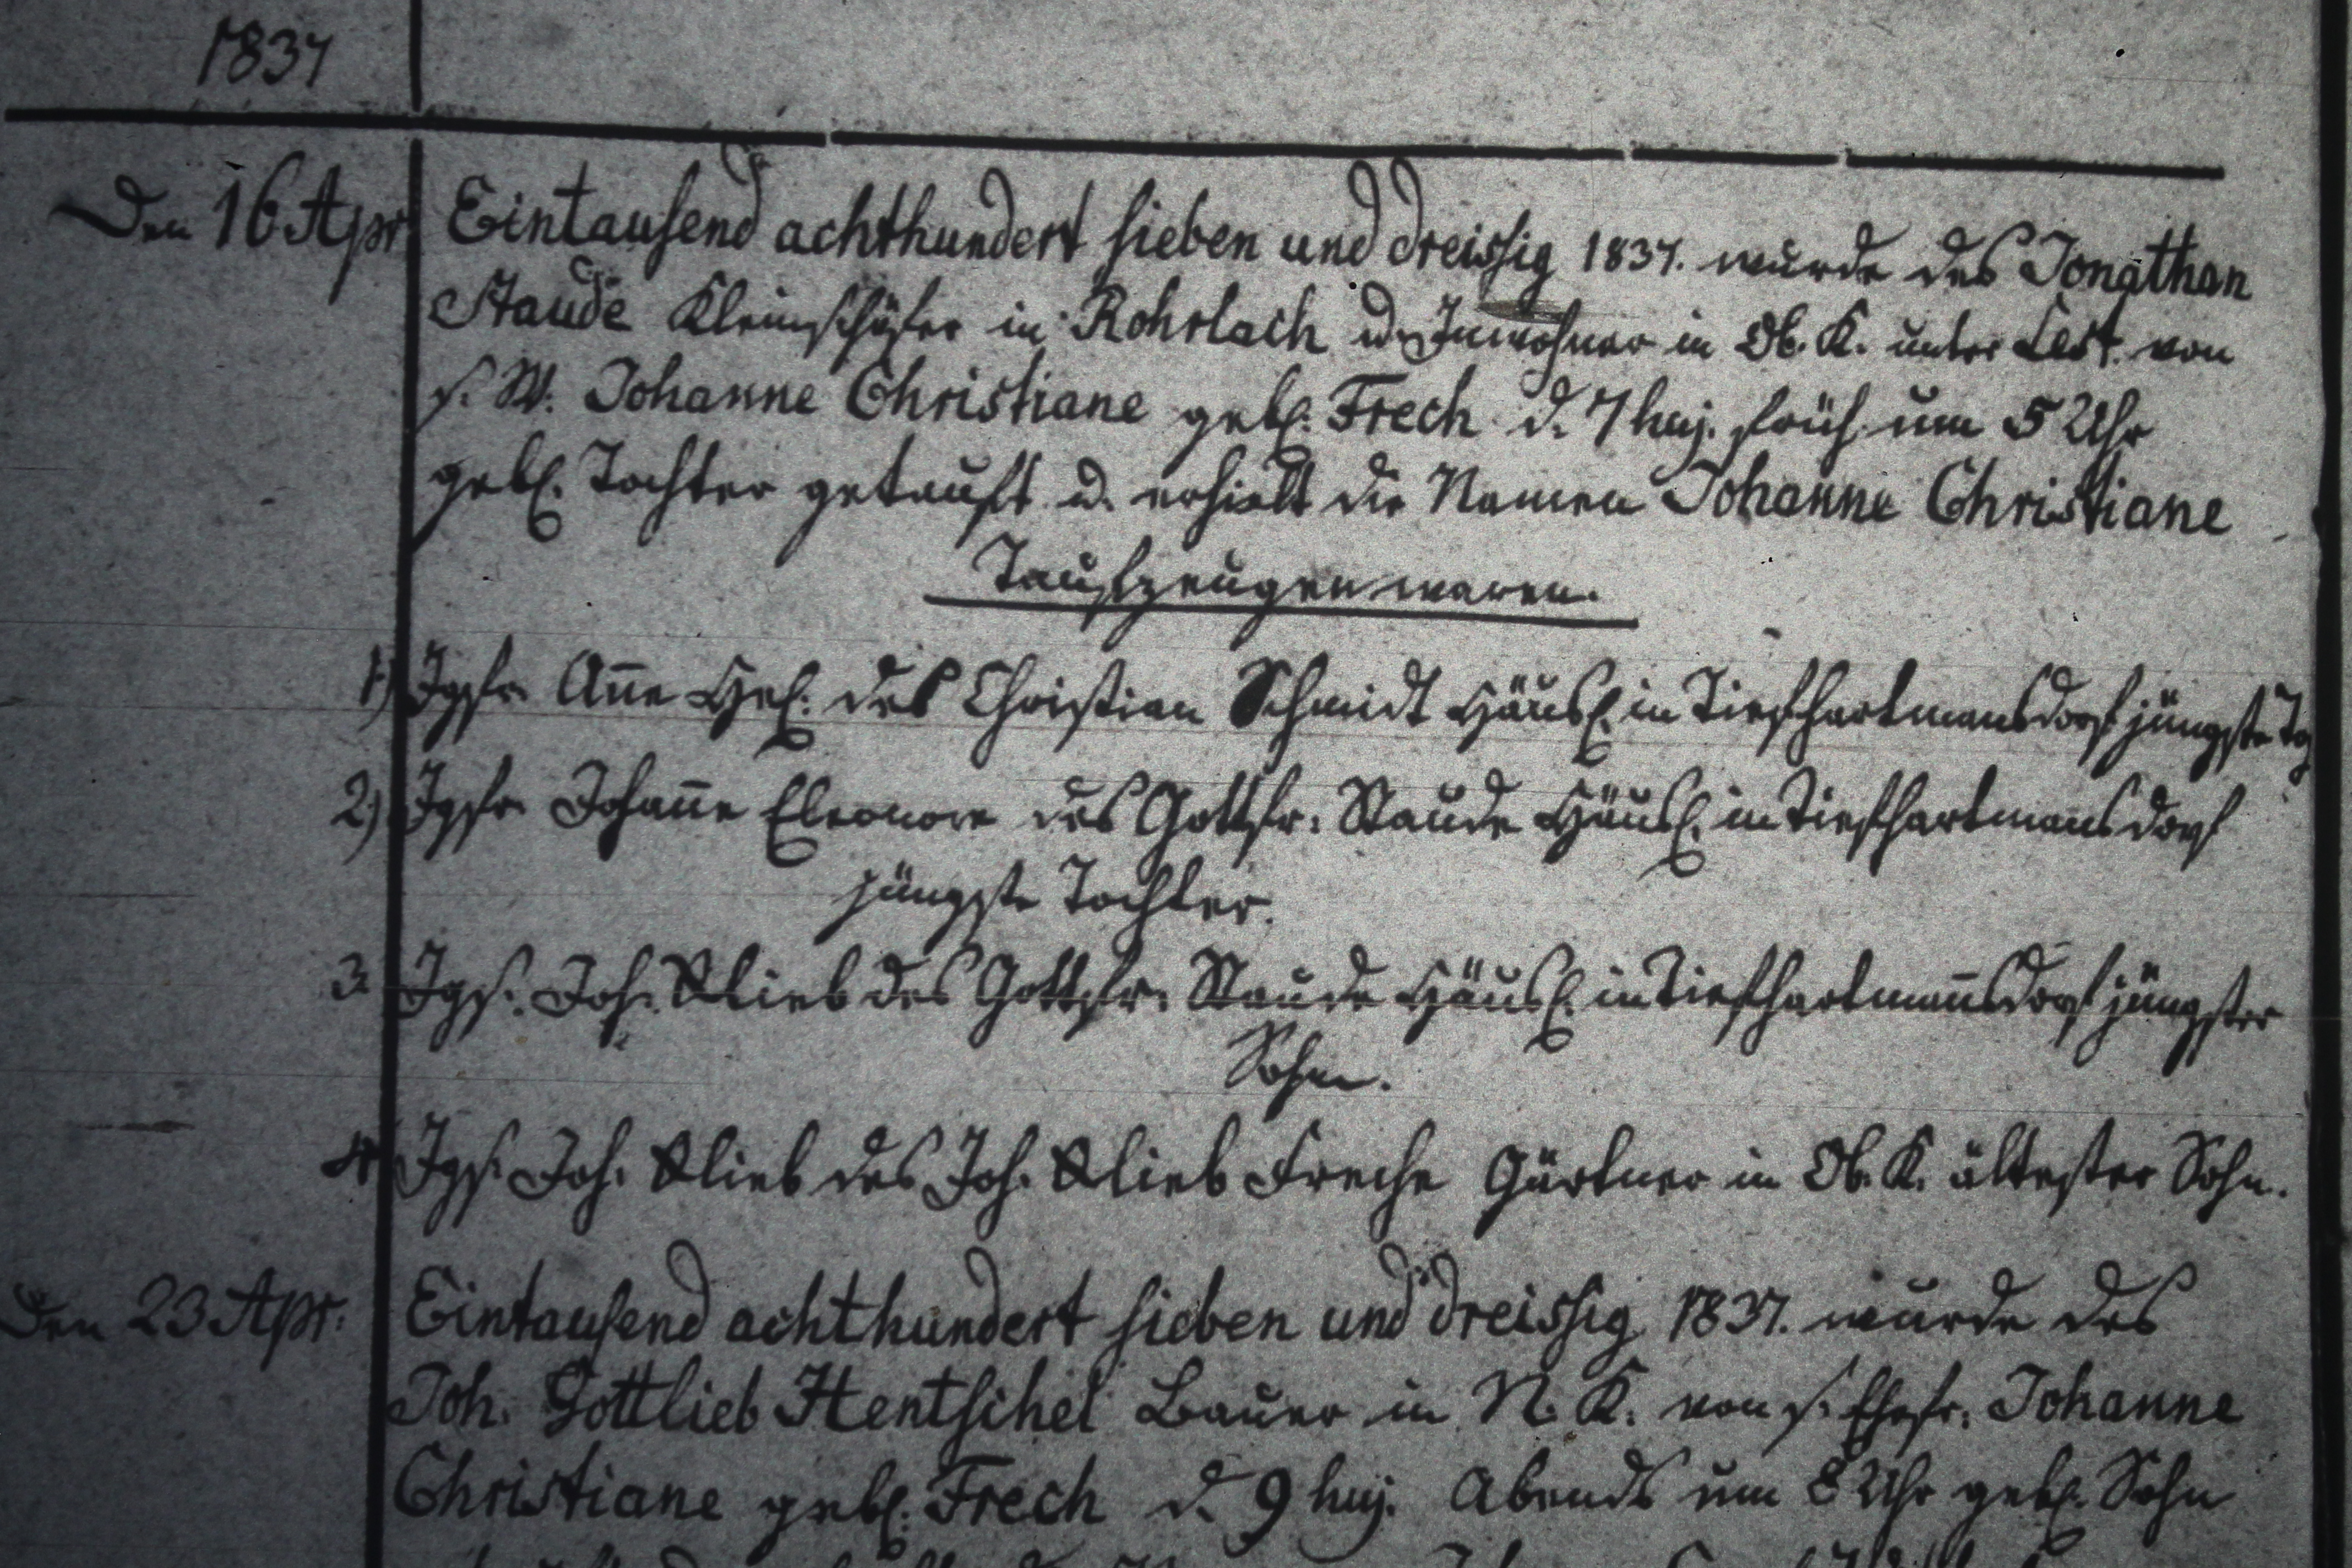 1837
Den 16 Apr Eintausend achthundert sieben und dreissig 1837. wurde des Jonathan
Staude Kleinschäfer in Rohrlach u. Inwohner in Ob. K. unter Lest. von
s. W. Johanne Christiane geb. Frech d. 7 huj. früh um 5 Uhr
geb. Tochter getauft u. erhielt die Namen Johanne Christiane
Taufzeugen waren.
1.) Jgfr. Añe des Christian Schmidt Häusl. in Tiefhartmansdorf jüngste
2.) Jgfr. Johañe Eleonore des Gottfr. Staude Häusl. in Tiefhartmansdorf
jüngste Tochter.
3. Jgs. Joh. Gottlieb des Gottfr. Staude Häusl. in Tiefhartmañsdorf jüngster
Sohn.
4 Jgs. Joh. Gottlieb des Joh. Gottlieb Freche Gärtner in Ob. K. ältester Sohn.
Den 23 Apr. Eintausend achthundert sieben und dreissig 1837. wurde des
Joh. Gottlieb Hentschel Bauer in N. K. von s. Ehefr. Johanne
Christiane geb. Frech d. 9 huj. Abends um 8 Uhr geb. Sohn